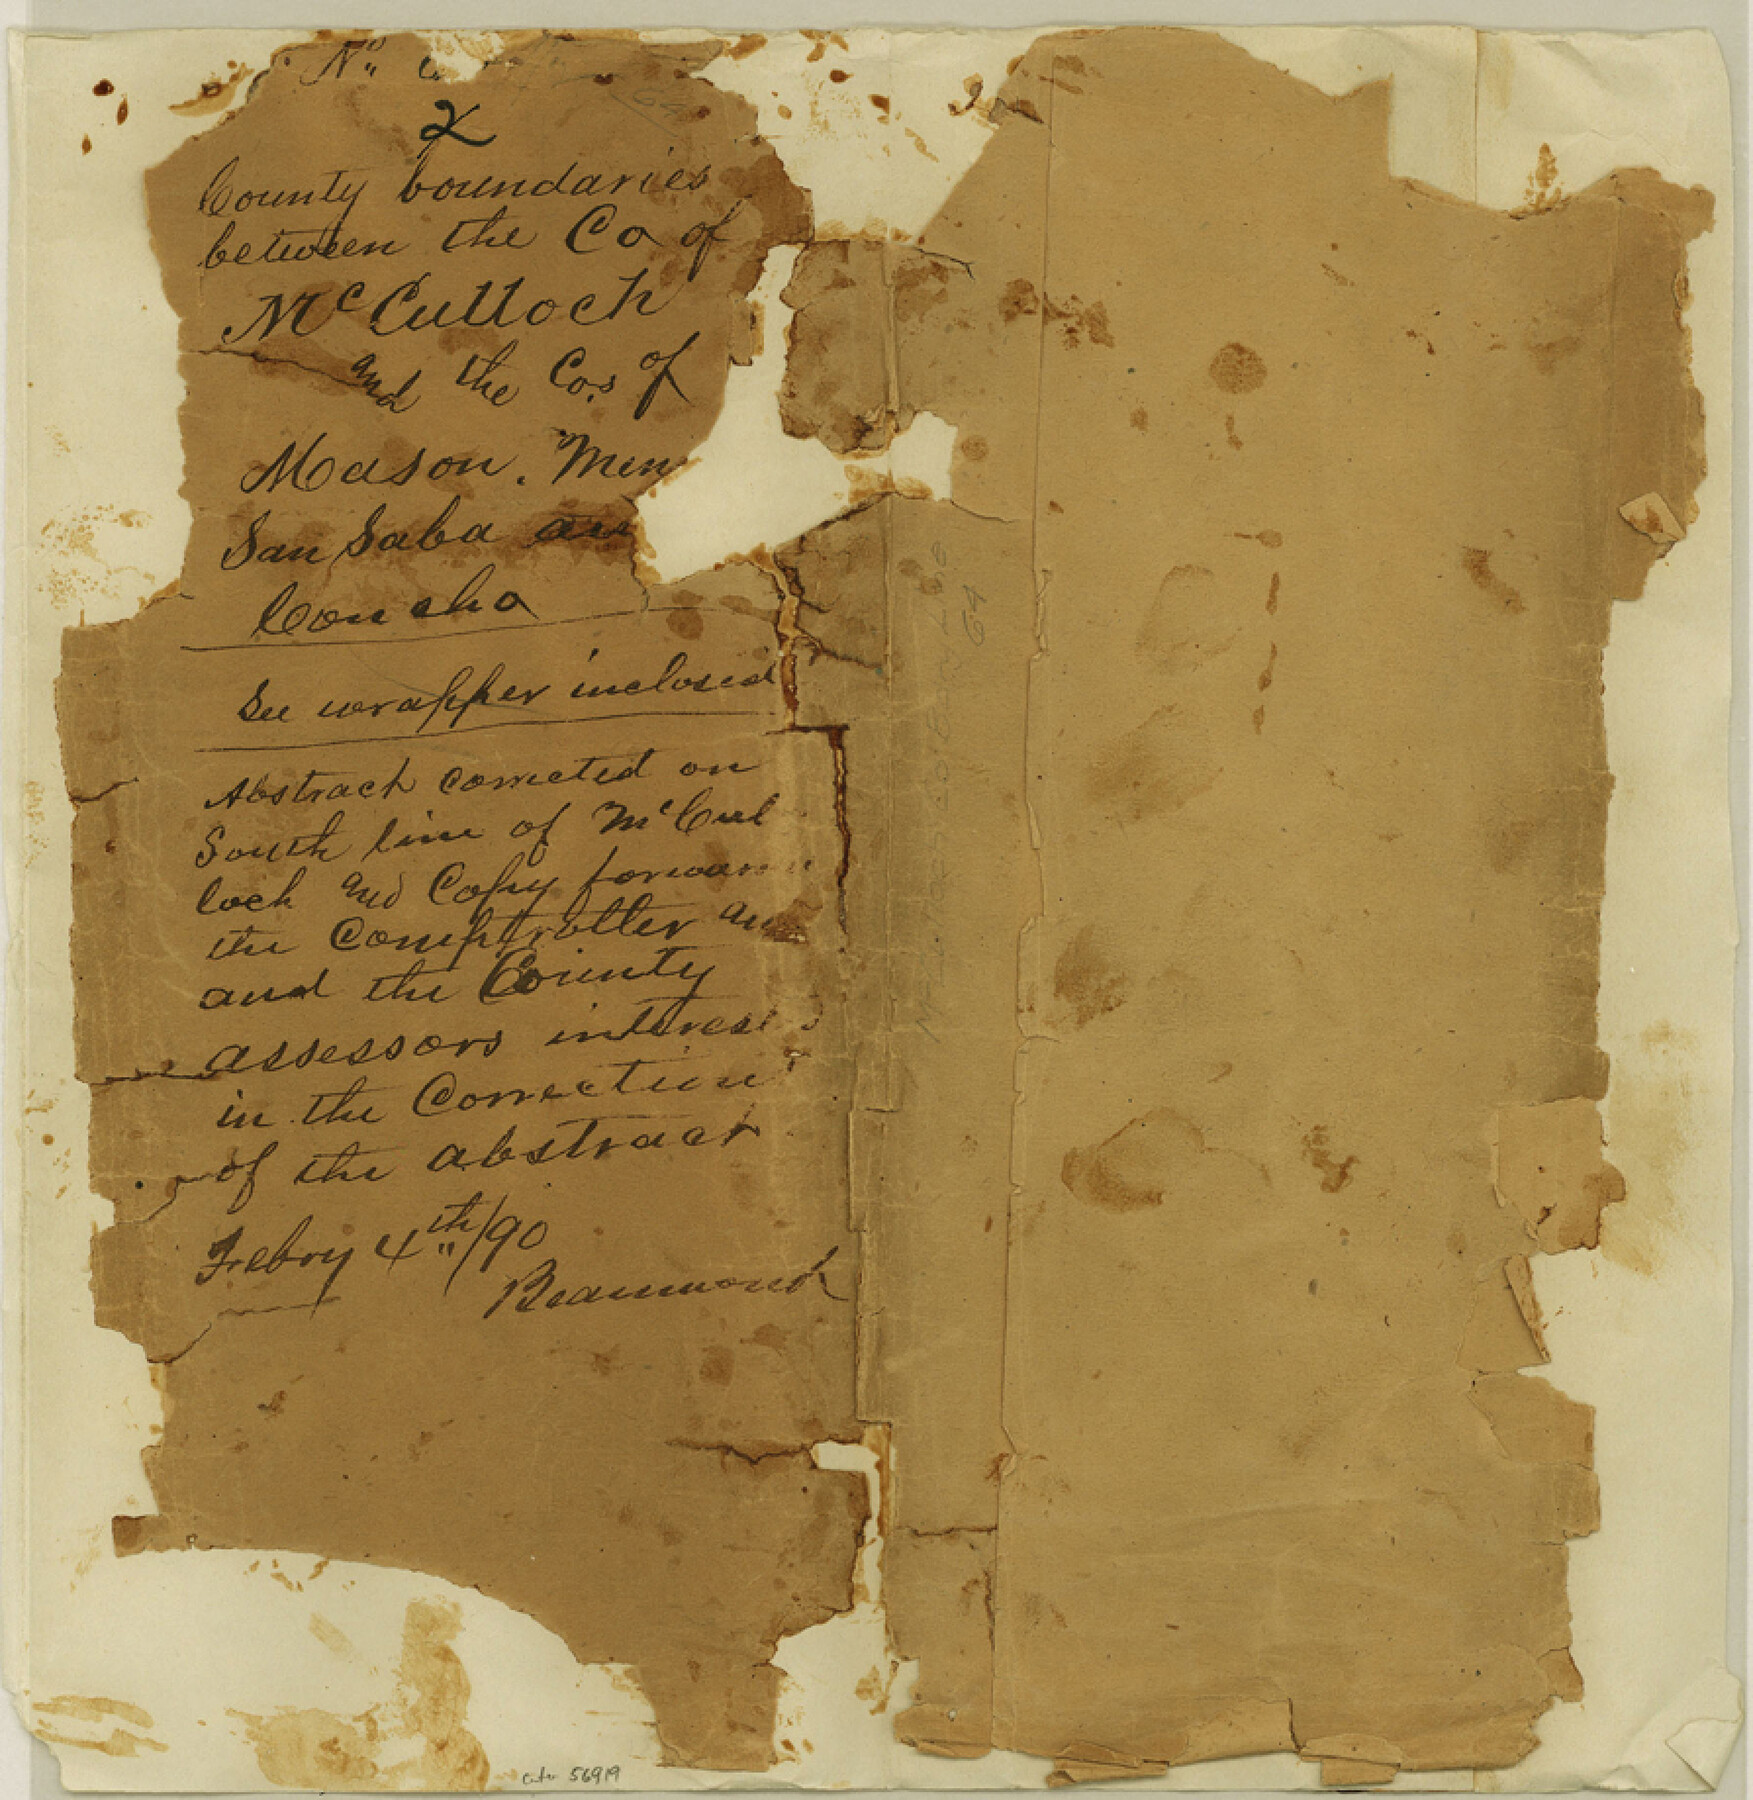 No.
64
2
County boundaries
between the Co of
McCulloch
and the Cos. of
Mason. Men
San Saba an
Concho
See wrapper inclosed
Abstract corrected on
South line of McCul
loch and Copy forwar
the Comptroller an
and the County
assessors interes
in the Correction
of the abstract
Febry 4th/90
Beaumond
64
56919